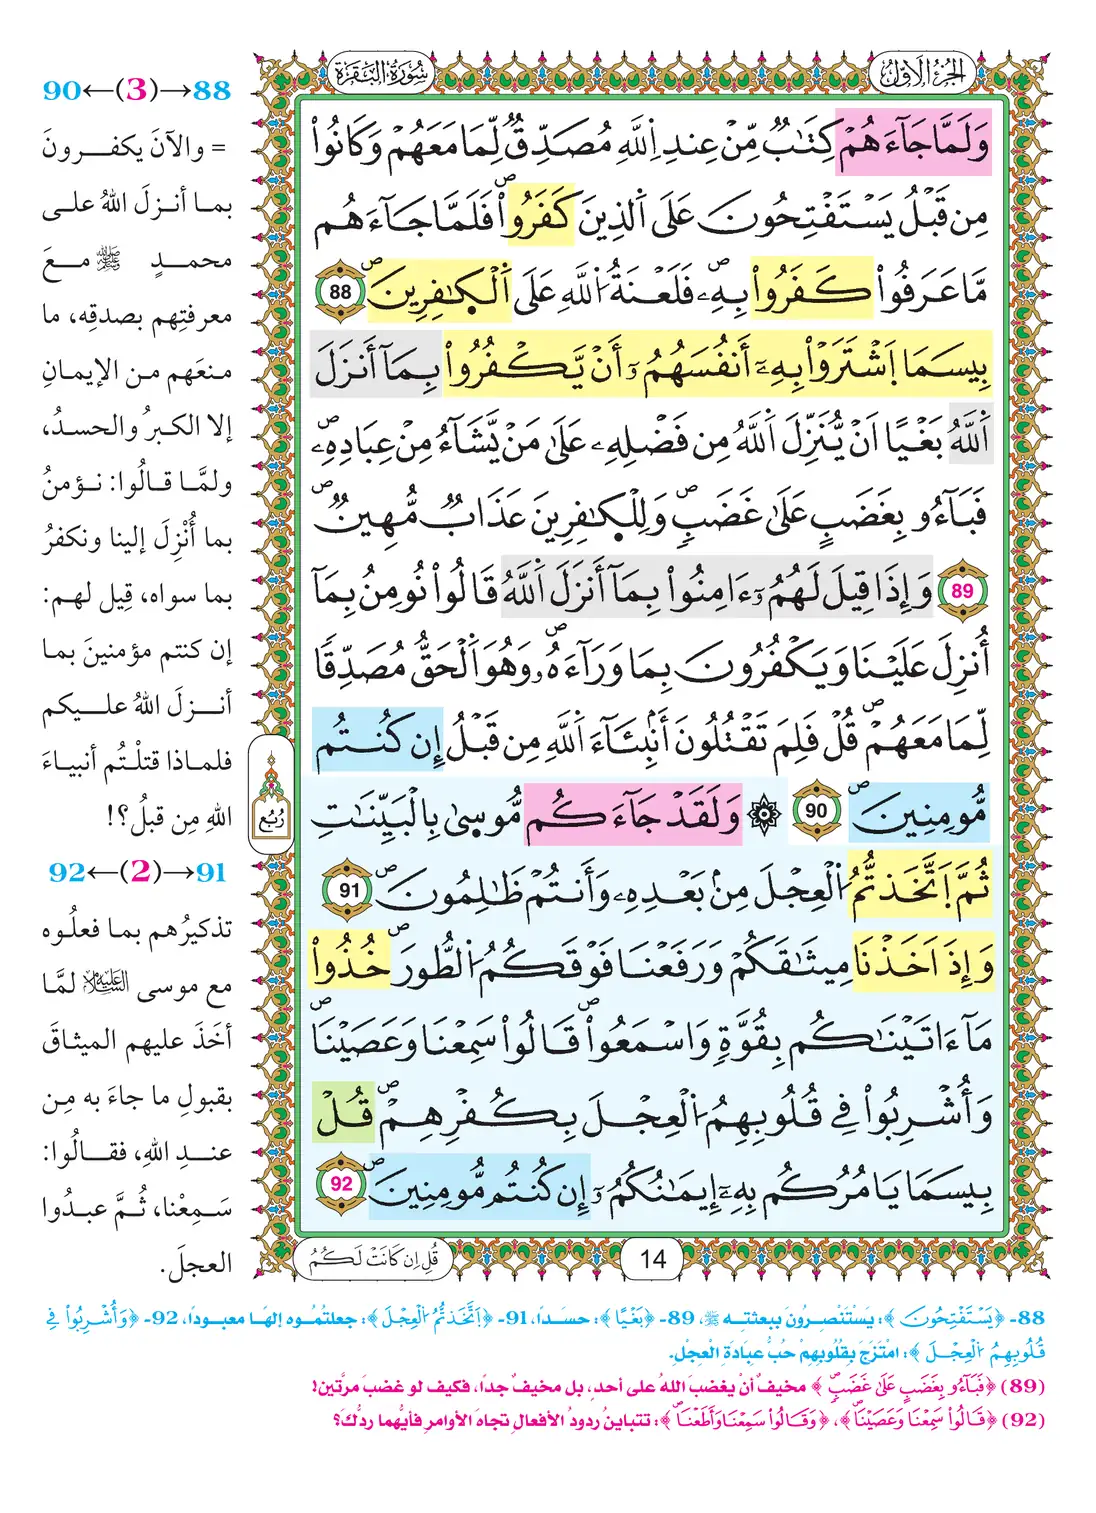 الجزء الأول
سورة البقرة
وَلَمَّا جَآءَهُمْ كِتَٰبٌ مِّنْ عِندِ اِ۬للَّهِ مُصَدِّقٌ لِّمَا مَعَهُمْ وَكَانُواْ
مِن قَبْلُ يَسْتَفْتِحُونَ عَلَى اَ۬لذِينَ كَفَرُواْۖ فَلَمَّا جَآءَهُم
مَّا عَرَفُواْ كَفَرُواْ بِهِۦۖ فَلَعْنَةُ اُ۬للَّهِ عَلَى اَ۬لْكٰ۪فِرِينَۖ 88
بِيسَمَا اَ۪شْتَرَوْاْ بِهِۦٓ أَنفُسَهُمُۥٓ أَنْ يَّكْفُرُواْ بِمَآ أَنزَلَ
اَ۬للَّهُ بَغْياً اَنْ يُّنَزِّلَ اَ۬للَّهُ مِن فَضْلِهِۦ عَلَىٰ مَنْ يَّشَآءُ مِنْ عِبَادِهِۦۖ
فَبَآءُو بِغَضَبٍ عَلَىٰ غَضَبٍۖ وَلِلْكٰ۪فِرِينَ عَذَابٌ مُّهِينٌۖ
89 وَإِذَا قِيلَ لَهُمُۥٓ ءَامِنُواْ بِمَآ أَنزَلَ اَ۬للَّهُ قَالُواْ نُومِنُ بِمَآ
أُنزِلَ عَلَيْنَا وَيَكْفُرُونَ بِمَا وَرَآءَهُۥۖ وَهُوَ اَ۬لْحَقُّ مُصَدِّقاً
لِّمَا مَعَهُمْۖ قُلْ فَلِمَ تَقْتُلُونَ أَنۢبِئَآءَ اَ۬للَّهِ مِن قَبْلُ إِن كُنتُم
مُّومِنِينَۖ 90 ۞ وَلَقَدْ جَآءَكُم مُّوسىٰ بِالْبَيِّنَٰتِ
ثُمَّ اَ۪تَّخَذتُّمُ اُ۬لْعِجْلَ مِنۢ بَعْدِهِۦ وَأَنتُمْ ظَٰلِمُونَۖ 91
وَإِذَ اَخَذْنَا مِيثَٰقَكُمْ وَرَفَعْنَا فَوْقَكُمُ اُ۬لطُّورَۖ خُذُواْ
مَآ ءَاتَيْنَٰكُم بِقُوَّةٍ وَاسْمَعُواْۖ قَالُواْ سَمِعْنَا وَعَصَيْنَاۖ
وَأُشْرِبُواْ فِي قُلُوبِهِمُ اُ۬لْعِجْلَ بِكُفْرِهِمْۖ قُلْ
بِيسَمَا يَامُرُكُم بِهِۦٓ إِيمَٰنُكُمُۥٓ إِن كُنتُم مُّومِنِينَۖ 92
14
قُلِ اِن كَانَتْ لَكُمُ
رُبُع
88→(3)←90
= والآنَ يكفرونَ
بما أنزلَ اللهُ على
محمدٍ ﷺ معَ
معرفتِهم بصدقِه، ما
منعَهم من الإيمانِ
إلا الكبرُ والحسدُ،
ولمَّا قالُوا: نؤمنُ
بما أُنْزِلَ إلينا ونكفرُ
بما سواه، قِيل لهم:
إن كنتم مؤمنينَ بما
أنزلَ اللهُ عليكم
فلماذا قتلْتُم أنبياءَ
اللهِ مِن قبلُ؟!
91→(2)←92
تذكيرُهم بما فعلُوه
مع موسى عليه السلام لمَّا
أخَذَ عليهم الميثاقَ
بقبولِ ما جاءَ به مِن
عندِ اللهِ، فقالُوا:
سَمِعْنا، ثُمَّ عبدُوا
العجلَ.
88- ﴿يَسْتَفْتِحُونَ﴾: يَسْتَنْصِرُونَ ببعثتِه ﷺ، 89- ﴿بَغْيًا﴾: حسَداً، 91- ﴿اَ۪تَّخَذتُّمُ اُ۬لْعِجْلَ﴾: جعلتُمُوه إلهًا معبوداً، 92- ﴿وَأُشْرِبُواْ فِي
قُلُوبِهِمُ اُ۬لْعِجْلَ﴾: امْتَزَجَ بِقُلُوبِهِمْ حُبُّ عِبَادَةِ العِجْلِ.
(89) ﴿فَبَآءُو بِغَضَبٍ عَلَىٰ غَضَبٍۖ﴾ مخيفٌ أنْ يغضبَ اللهُ على أحدٍ، بل مخيفٌ جداً، فكيف لو غضبَ مرَّتين!
(92) ﴿قَالُواْ سَمِعْنَا وَعَصَيْنَاۖ﴾، ﴿وَقَالُواْ سَمِعْنَا وَأَطَعْنَاۖ﴾: تتباينُ ردودُ الأفعالِ تجاهَ الأوامرِ فأيُّهما ردُّكَ؟